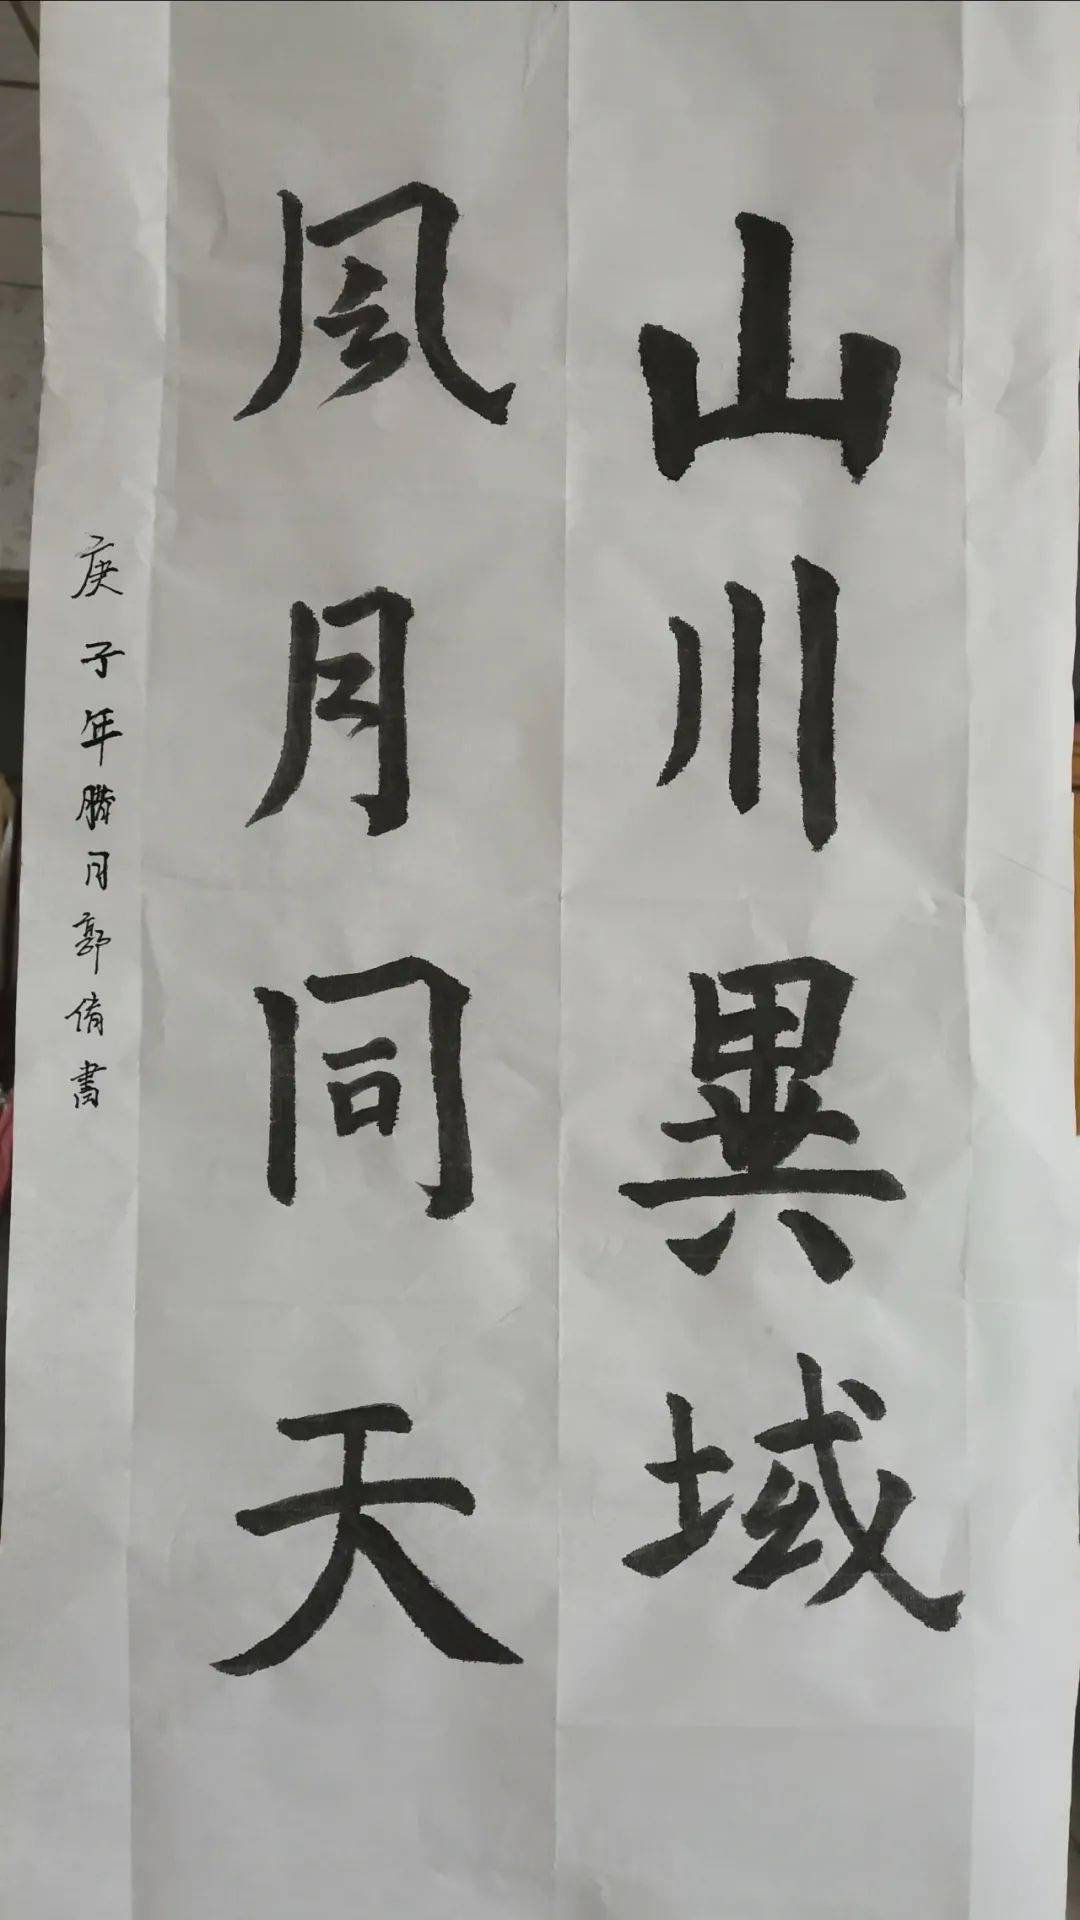 山川異域
風月同天
庚子年臘月郭倩書